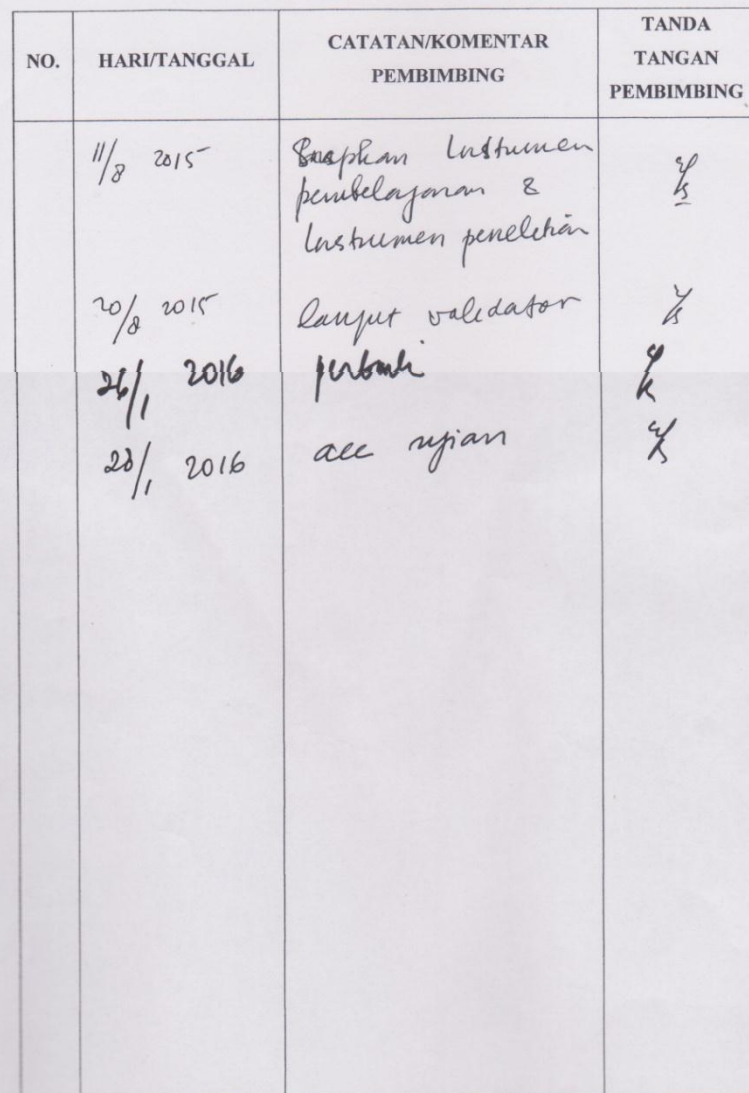 NO. HARI/TANGGAL CATATAN/KOMENTAR PEMBIMBING TANDA TANGAN PEMBIMBING
11/8 2015 Siapkan Instrumen
pembelajaran &
Instrumen penelitian
20/8 2015 lanjut validator
26/1 2016 perbaiki
28/1 2016 acc ujian